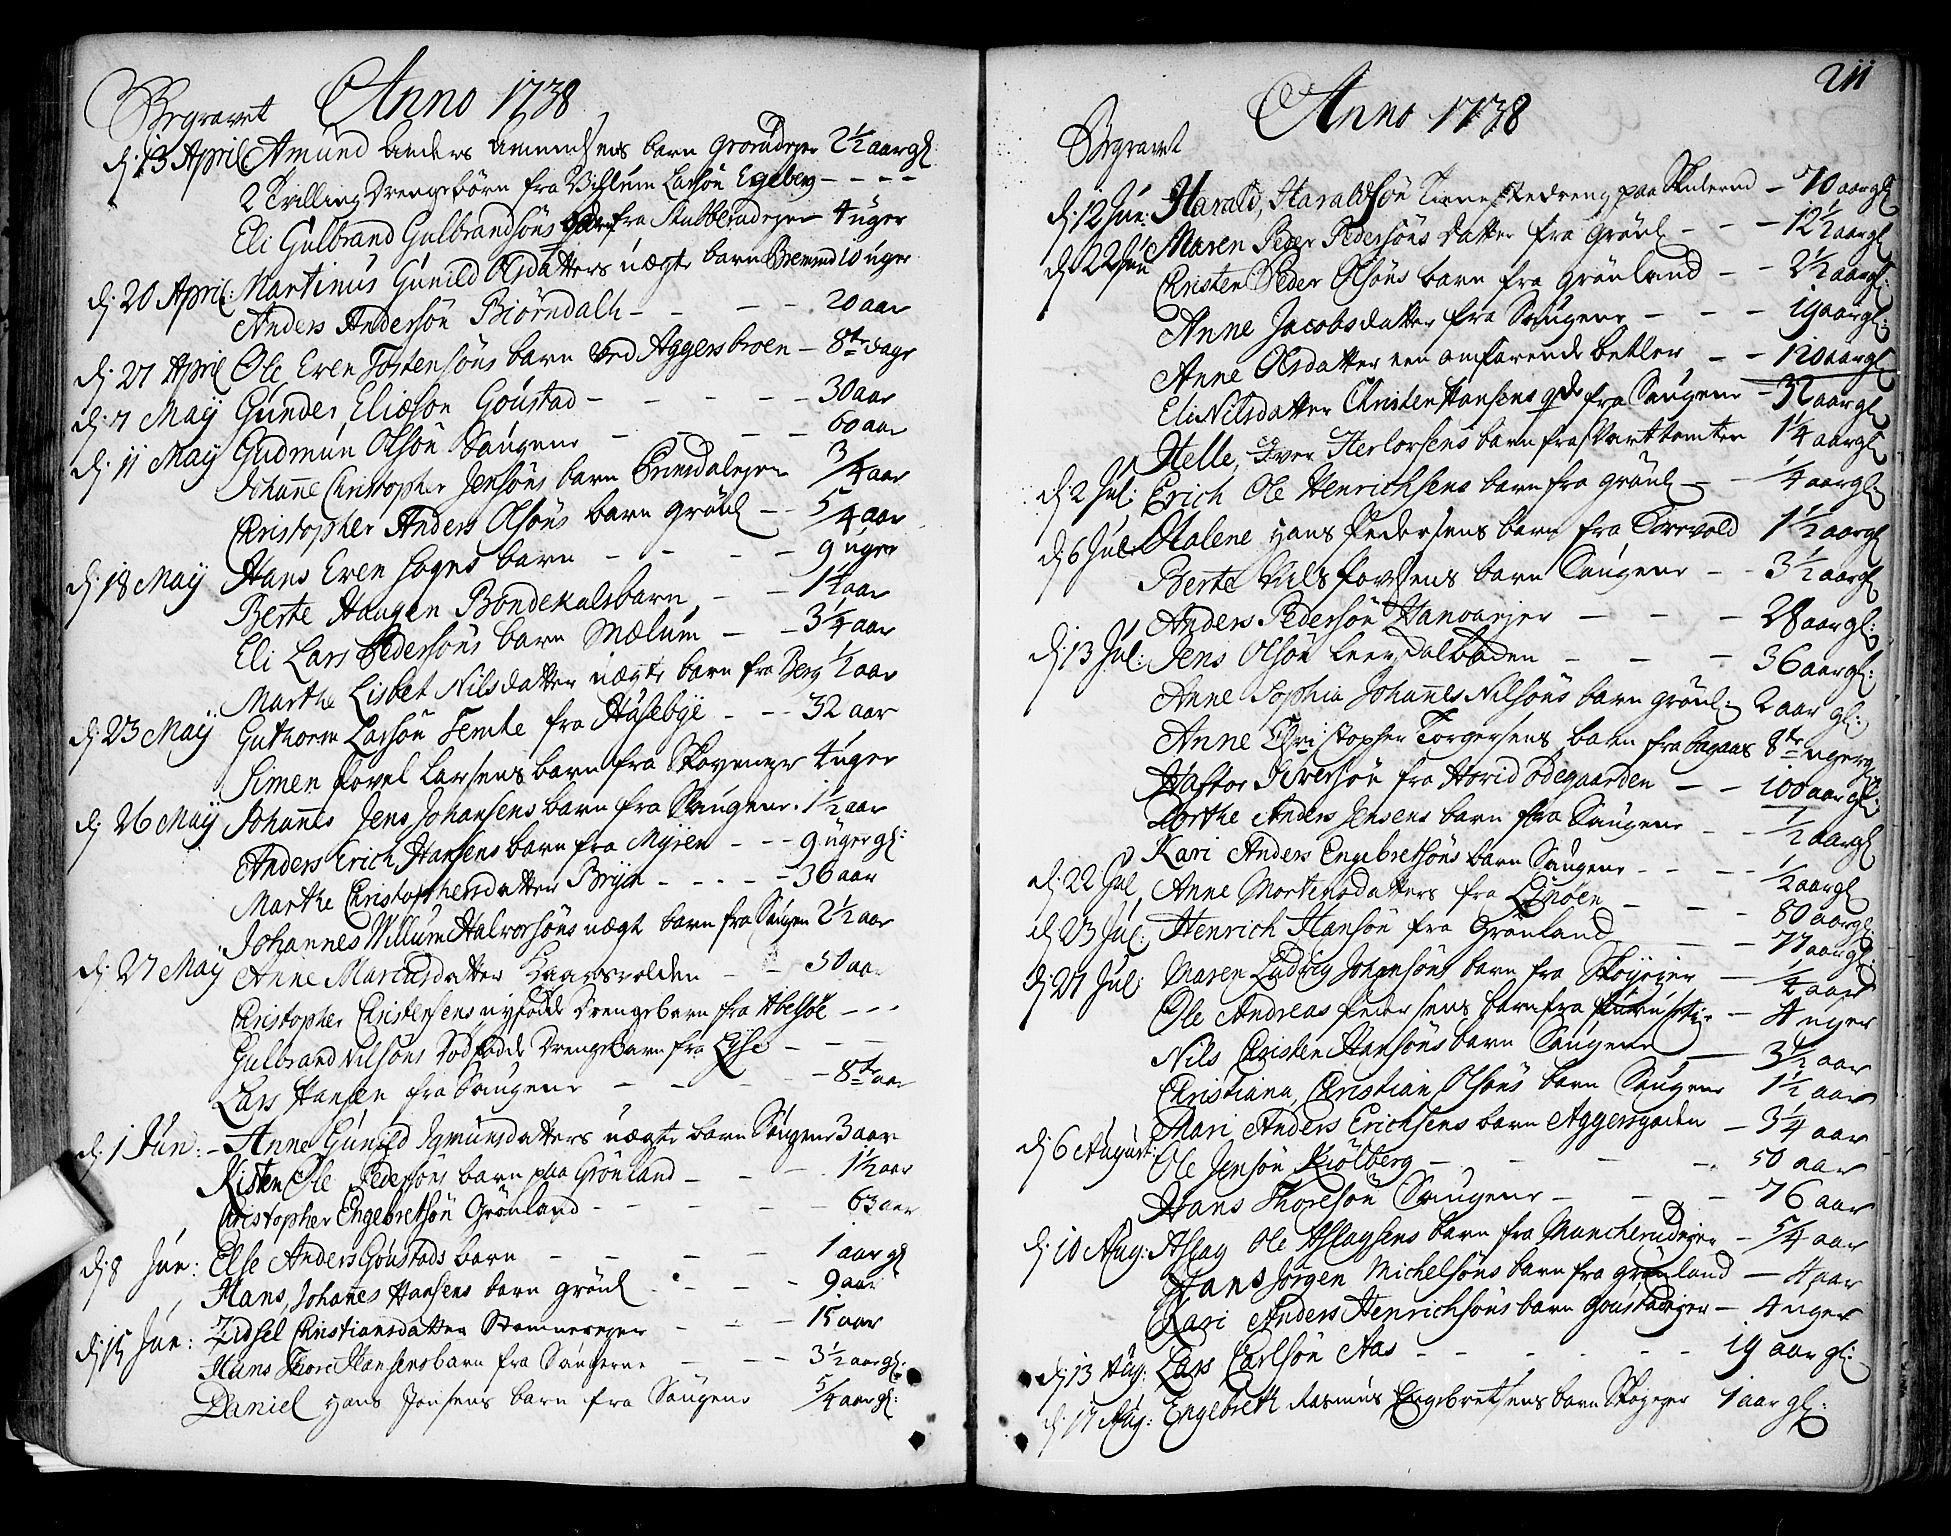 Begravet Anno 1738
dj 13 April Amund Anders Amundsens barn Grorudejer 2½ aar gl:
2 Trilling Drengebørn fra Villum Larsøn Egeberg - - - -
Eli Gulbrand Gulbrandsøns barn fra Stubberudejer 4 uger
dj 20 April: Martinus Gunild Olsdatters uægte barn Bremund 10 uger
Anders Andersøn Biørndalh - - - 20 aar
dj 27 April Ole Even Tostensøns barn ved Aggersbroen - 8te dage
dj 7 Maij Gunder Eliæson Goustad - - - - 30 aar
dj 11 Maij Gudmun Olsøn Saugene - - - 60 aar
Johanne Christopher Jensøns barn 3/4 aar
Christopher Anders Olsøns barn Grønl - - 5/4 aar
dj 18 Maij Hans Even Sogns barn - - - - 9 uger
Berte Haugen Bondekalsbarn - - 1¼ aar
Eli Lars Pedersøns barn Mælum - - 3¼ aar
Marthe Lisbet Nilsdatter uægte barn fra Berg ½ aar
dj 23 Maij Guthorm Larsøn Temte fra Husebye - - - 32 aar
Simen Povel Larsens barn fra Skovenejer 4 uger
dj 26 Maij Johannes Jens Johansens barn fra Saugene. 1½ aar
Anders Erich Hansens barn fra Myren - - - 9 uger gl:
Marthe Christophersdatter Bryn - - - - 36 aar
Johannes Willum Halvorsøns uægt barn fra Saugen 2½ aar
dj 27 Maij Anne Marcusdatter - - 30 aar
Christopher Christensens nyfødde Drengebarn fra Abelsøe - - -
Gulbrand Nilsøns Dødfødde Drengebarn fra - - -
Lars Hansen fra Saugene - - - - 8te aar
dj 1 Jun: - Anne Gunild Igmunsdatters uægte barn Saugene 3 aar
Kisten Ole Pedersøns barn paa Grønland - - - 1½ aar
Christopher Engebretsøn Grønland - - - - - 63 aar
dj 8 Jun: Else Anders Goustads barn - - - - 1 aar gl
Hans, Johanes Hansens barn Grønl - - - 9 aar
dj 15 Jun: Zidsel Christiansdatter Stamnesejer - - - 15 aar
Hans Thore Hansens barn fra Saugerne - - - 3½ aar gl:
Daniel Hans Jensens barn fra Saugene 5/4 aar gl:
211
Anno 1738
Begravet
dj 12 Jun: Harald, Haraldsøn Tienestedreng paa Skulerud - 70 aar gl
dj 22 Jun Maren Peder Pedersøns datter fra Grønl - - - 12½ aar gl
Christen Peder Olsøns barn fra Grønland - - 2½ aar gl:
Anne Jacobsdatter fra Saugene - - - 19 aar gl:
Anne Olsdatter een omfarende betler - - 120 aar gl
Eli Nilsdatter Christen Hansens qde fra Saugene - 32 aar gl
Helle, Iver Herlorsens barn fra Svarttomten 1¼ aar gl
dj 2 Jul: Erich Ole Henrichsens barn fra Grønl - - ¼ aar gl:
dj 6 Jul: Malene Hans Pedersens barn fra Torevold 1½ aar gl
Berte Nils Povelsens barn Saugene - - 3½ aar gl
Anders Pedersøn Hanoarejer - - - 28 aar gl:
dj 13 Jul: Jens Olsøn Leerdalboden - - - 36 aar gl:
Anne Sophia Johannes Nilsøns barn Grønl: 2 aar gl:
Anne Christopher Torgersens barn fra Bagaas 8te uger gl
Haftor Iversøn fra Hovid ødegaarden - - 100 aar gl:
Dorthe Anders Jensens barn fra Saugene - - ½ aar gl
Kari Anders Engebretsøns barn Saugene - - - ½ aar gl
dj 22 Jul Anne Mortensdatters fra Linøen - - - 80 aar gl:
dj 23 Jul: Henrich Hansøn fra Grønland - - 77 aar gl:
dj 27 Jul: Maren Ludvig Johansøns barn fra Skøyejer - ¼ aar
Ole Andreas Peiersens barn fra - 4 uger
Nils Christen Hansøns barn Saugene - 3½ aar
Christiana, Christian Olsøns barn Saugene 1½ aar
Mari Anders Erichsens barn Aggersgaden - 3¼ aar
dj 6 August: Ole Jensøn Kiølberg - - - - 50 aar
Hans Thoresøn Saugene - - - 76 aar
dj 10 Aug: Aslag Ole Aslagsens barn fra Muncherudejer - 5/4 aar
Hans Jørgen Michelsøns barn fra Grønland - 4 aar
Kari Anders Henrichsøns barn Goustadejer - 4 uger
dj 13 Aug: Lars Carlsøn Aas - - - - - 19 aar gl:
dj 17 Aug: Engebrett Rasmus Engebretsens barn Skøyejer 1 aar gl: